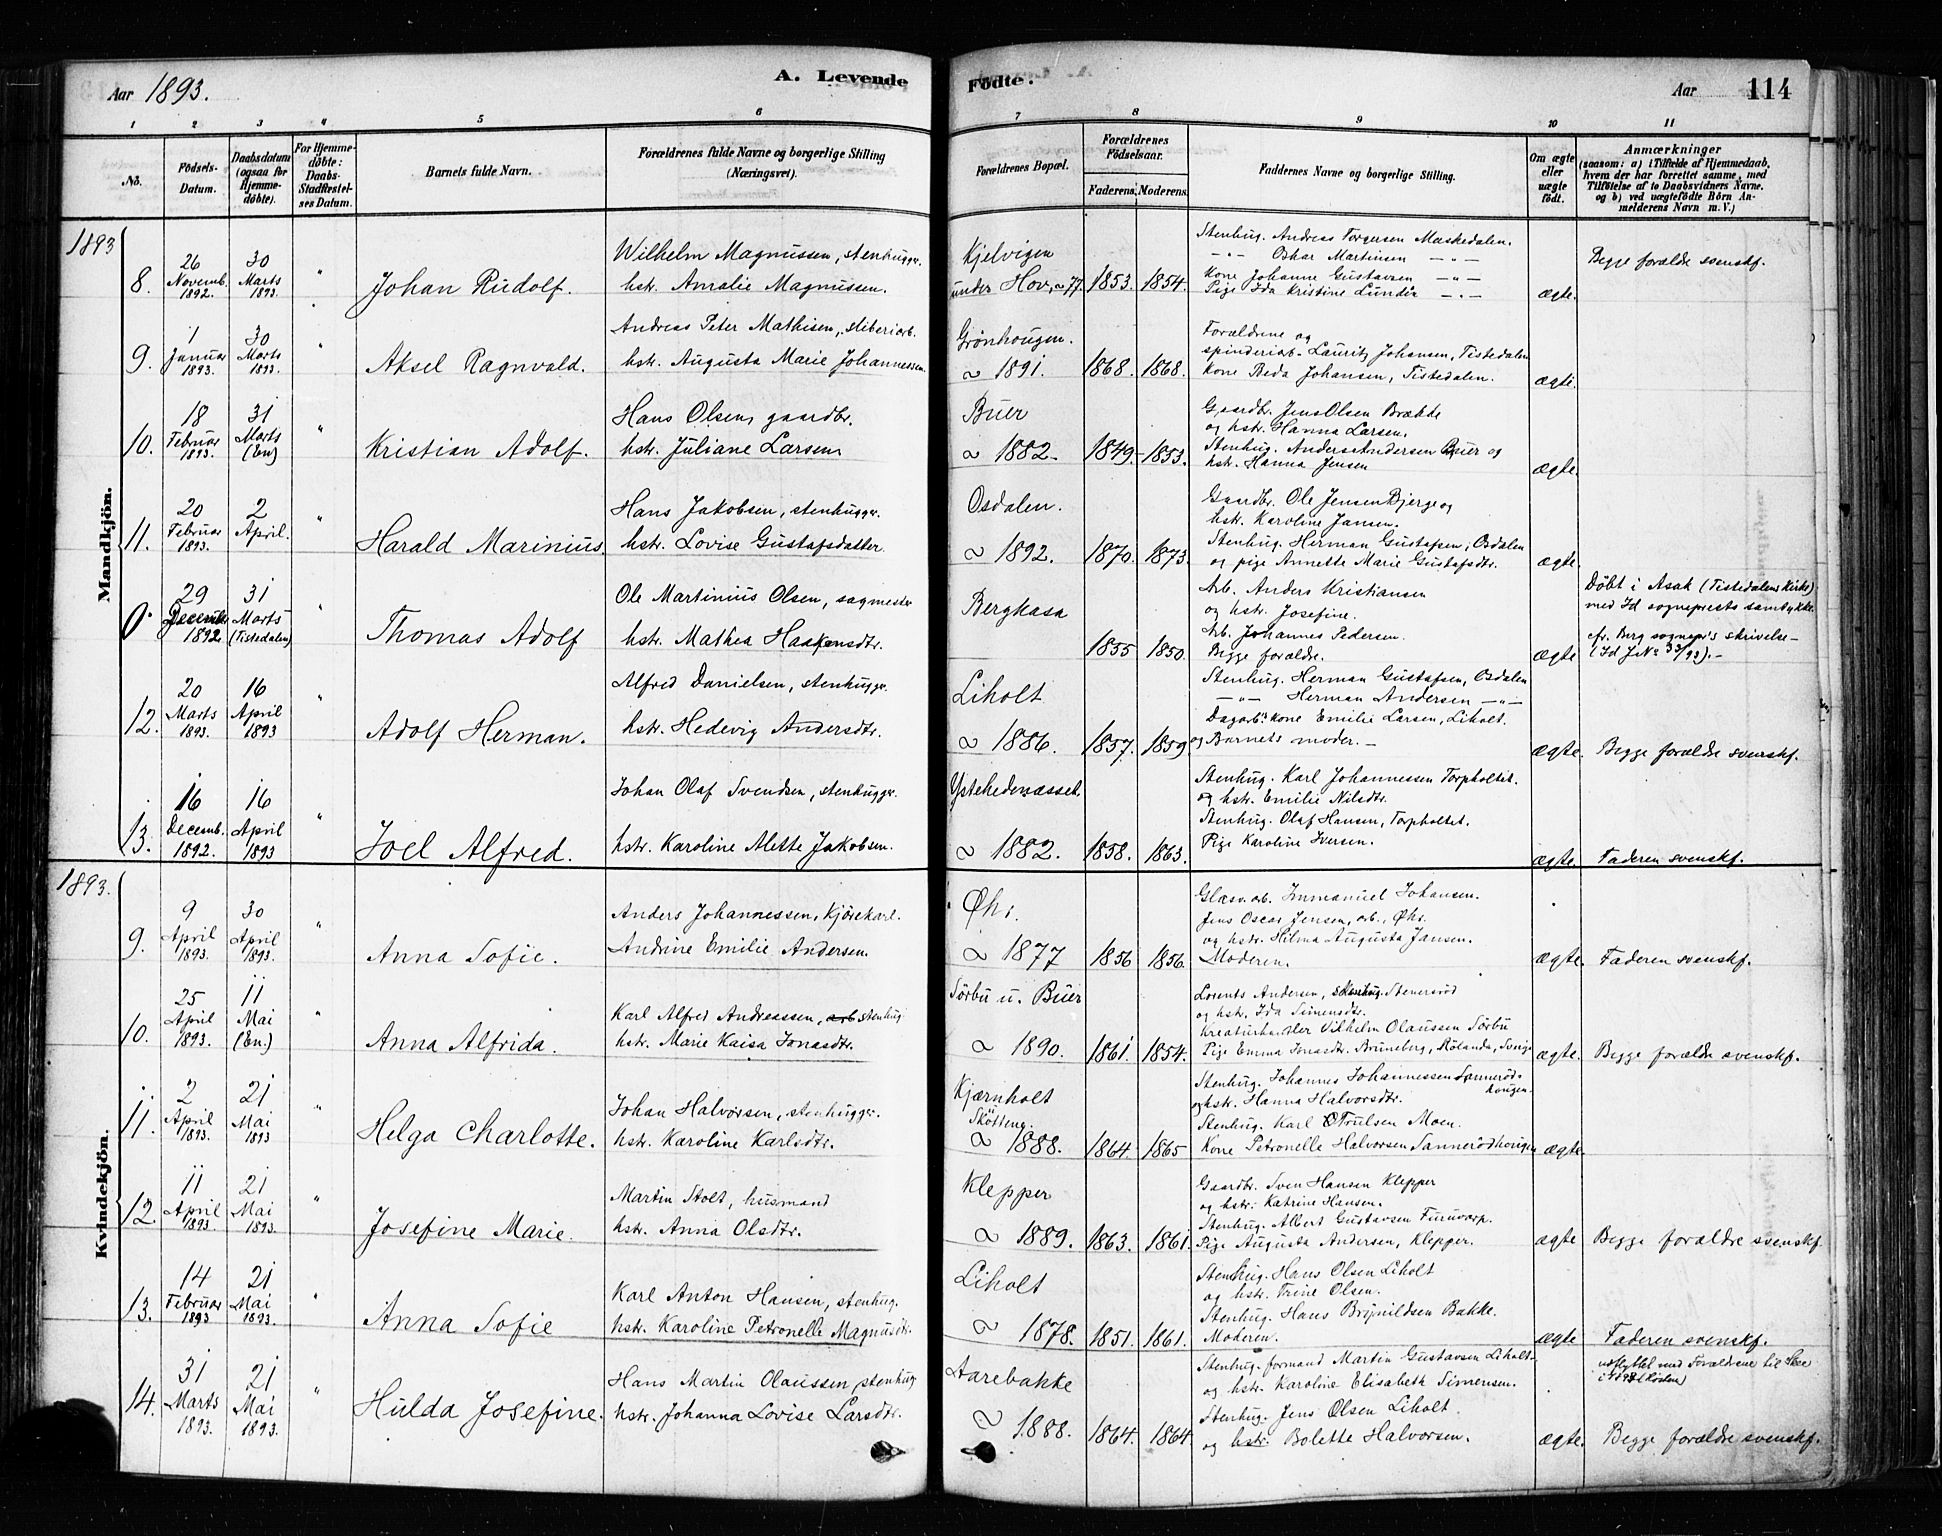 Aar 1893. A. Levende Födte. Aar 114
1 2 3 4 5 6 7 8 9 10 11
No.
Födsels-Datum.
Daabsdatum (ogsaa for Hjemmedöbte).
For Hjemmedöbte: Daabs-Stadfæstelses Datum.
Barnets fulde Navn.
Forældrenes fulde Navne og borgerlige Stilling (Næringsvei).
Forældrenes Bopæl.
Forældrenes Födselsaar.
Faderens. Moderens.
Faddernes Navne og borgerlige Stilling.
Om ægte eller uægte födt.
Anmærkninger
(saasom: a) i Tilfælde af Hjemmedaab,
hvem der har forrettet samme, med
Tilföielse af to Daabsvidners Navne.
og b) ved uægtefödte Börn An-
melderens Navn m. V.)
Mandkjön.
1893
8.
26 Novemb. 1892.
30 Marts 1893.
"
Johan Rudolf.
Wilhelm Magnussen, stenhugger.
hstr. Amalie Magnussen.
Kjelvigen
under Hov, ~ 77.
1853. 1854.
Stenhug. Andreas Torgersen Maskedalen.
—"— Oskar Martinsen —"—
Kone Johanne Gustavsen —"—
Pige Ida Kristine Lunder —"—
ægte.
Begge forældre svenskf.
9.
1 Januar 1893.
30 Marts 1893.
"
Aksel Ragnvald.
Andreas Peter Mathisen, sliberiarb.
hstr. Augusta Marie Johannessen.
Grönhougen.
~ 1891.
1868. 1868.
Forældrene og
spinderiarb. Lauritz Johansen, Tistedalen
Kone Beda Johansen, Tistedalen.
ægte.
10.
18 Februar 1893.
31 Marts (En)
"
Kristian Adolf.
Hans Olsen, gaardbr.
hstr. Juliane Larsen
Buer
~ 1882.
1849. 1853.
Gaardbr. Jens Olsen Brække
og hstr. Hanna Larsen.
Stenhug. Anders Andersen Buer og
hstr. Hanna Jensen
ægte.
11.
20 Februar 1893.
2 April.
"
Harald Marinius.
Hans Jakobsen, stenhugger.
hstr. Lovise Gustafsdatter.
Osdalen.
~ 1892.
1870. 1873.
Gaardbr. Ole Jensen Bjerge og
hstr. Karoline Jansen.
Stenhug. Herman Gustafsen, Osdalen
og pige Annette Marie Gustafsdtr.
ægte.
0.
29 December 1892
31 Marts (Tistedalen)
"
Thomas Adolf
Ole Martinius Olsen, sagmester
hstr. Mathea Haakensdtr.
Bergkasa
1855 1850.
Arb. Anders Kristiansen
og hstr. Josefine.
Arb. Johannes Pedersen.
Begge forældre.
ægte
Döbt i Asak (Tistedalens Kirke)
med Id sogneprests samtykke
cfr. Berg sognepr's skrivelse—
(Id J.No 33/93).—
12.
20 Marts 1893.
16 April 1893
"
Adolf Herman.
Alfred Danielsen, stenhugger.
hstr. Hedevig Andersdtr.
Liholt
~ 1886.
1857. 1859
Stenhug. Herman Gustafsen, Osdalen
—"— Herman Andersen —"—
Dagarb's kone Emilie Larsen, Liholt.
og Barnets moder.—
ægte.
Begge forældre svenskf.
13.
16 Decemb. 1892.
16 April 1893
"
Joel Alfred.
Johan Olaf Svendsen, stenhugger.
hstr. Karoline Alette Jakobsen.
Ystehedenæsset.
~ 1882.
1858. 1863.
Stenhug. Karl Johannessen Torpholtet.
og hstr. Emilie Nilsdtr.
Stenhug. Olaf Hansen, Torpholtet.
Pige Karoline Iversen.
ægte.
Faderen svenskf.
Kvindekjön.
1893.
9.
9 April 1893.
30 April 1893.
"
Anna Sofie.
Anders Johannessen, Kjörekarl.
Andrine Emilie Andersen.
Øhr.
~ 1877
1856 1856.
Glasv.arb. Immanuel Johansen.
Jens Oscar Jensen, arb., Øhr.
og hstr. Hilma Augusta Jansen.
Moderen.
ægte.
Faderen svenskf.
10.
25 April 1893.
11 Mai (En.)
"
Anna Alfrida.
Karl Alfred Andreassen, arb. stenhug
hstr. Marie Kaisa Jonasdtr.
Sörbu u. Buer
~ 1890.
1861. 1854.
Lorents Andersen, Stenersröd
og hstr. Ida Simensdtr.
Kreaturhandler Vilhelm Olaussen Sörbu
Pige Emma Jonasdtr. Bruneberg, Rölanda, Sverige
ægte.
Begge forældre svenskf.
11.
2 April 1893.
21 Mai 1893
"
Helga Charlotte.
Johan Halvorsen, stenhugger.
hstr. Karoline Karlsdtr.
Kjærnholt
Skötteng.
~ 1888.
1864. 1865
Stenhug. Johannes Johannessen Sanneröd-
hougen.
og hstr. Hanna Halvorsdtr.
Stenhug. Karl Trulsen Moen.
Kone Petronelle Halvorsen Sannerödhougen
ægte.
12.
11 April 1893.
21 Mai 1893.
"
Josefine Marie.
Martin Stolt, husmand
hstr. Anna Olsdtr.
Klepper
~ 1889.
1863. 1861.
Gaardbr. Sven Hansen Klepper
og hstr. Katrine Hansen.
Stenhug. Albert Gustavsen Furuvarp.
Pige Augusta Andersen, Klepper.
ægte
Begge forældre svenskf.
13.
14 Februar 1893
21 Mai 1893
"
Anna Sofie
Karl Anton Hansen, stenhug.
hstr. Karoline Petronelle Magnusdtr.
Liholt
~ 1878.
1851. 1861.
Stenhug. Hans Olsen Liholt
og hstr. Trine Olsen.
Stenhug. Hans Brynildsen Bakke.
Moderen.
ægte
Faderen svenskf.
14.
31 Marts 1893.
21 Mai 1893.
"
Hulda Josefine.
Hans Martin Olaussen, stenhug
hstr. Johanna Lovise Larsdtr.
Aarebakke
~ 1888.
1864. 1864
Stenhug.formand Martin Gustavsen Liholt
og hstr. Karoline Elisabeth Simensen.
Stenhug. Jens Olsen Liholt.
og hstr. Bolette Halvorsen.
ægte.
udflyttet med Forældrene til
Begge forældre svenskf.